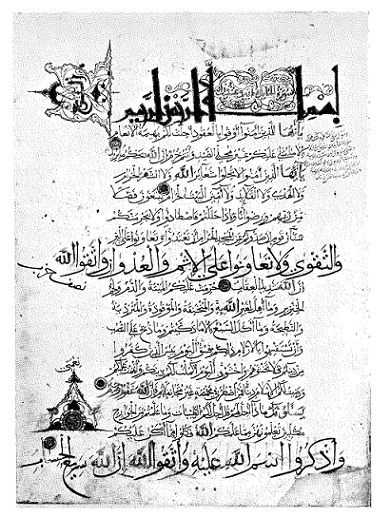 بسم الله الرحمن الرحيم
يا أيها الذين آمنوا أوفوا بالعقود أحلت لكم بهيمة الأنعام
إلا ما يتلى عليكم غير محلي الصيد وأنتم حرم إن الله يحكم ما يريد
يا أيها الذين آمنوا لا تحلوا شعائر الله ولا الشهر الحرام
ولا الهدي ولا القلائد ولا آمين البيت الحرام يبتغون فضلا
من ربهم ورضوانا وإذا حللتم فاصطادوا ولا يجرمنكم
شنآن قوم أن صدوكم عن المسجد الحرام أن تعتدوا وتعاونوا على البر
والتقوى ولا تعاونوا على الإثم والعدوان واتقوا الله
نصف حزب
إن الله شديد العقاب حرمت عليكم الميتة والدم ولحم
الخنزير وما أهل لغير الله به والمنخنقة والموقوذة والمتردية
والنطيحة وما أكل السبع إلا ما ذكيتم وما ذبح على النصب
وأن تستقسموا بالأزلام ذلكم فسق اليوم يئس الذين كفروا
من دينكم فلا تخشوهم واخشون اليوم أكملت لكم دينكم وأتممت عليكم
نعمتي
ورضيت لكم الإسلام دينا فمن اضطر في مخمصة غير متجانف لإثم فإن الله غفور رحيم
يسألونك ماذا أحل لهم قل أحل لكم الطيبات وما علمتم من الجوارح
مكلبين تعلمونهن مما علمكم الله فكلوا مما أمسكن عليكم
واذكروا اسم الله عليه واتقوا الله إن الله سريع الحساب